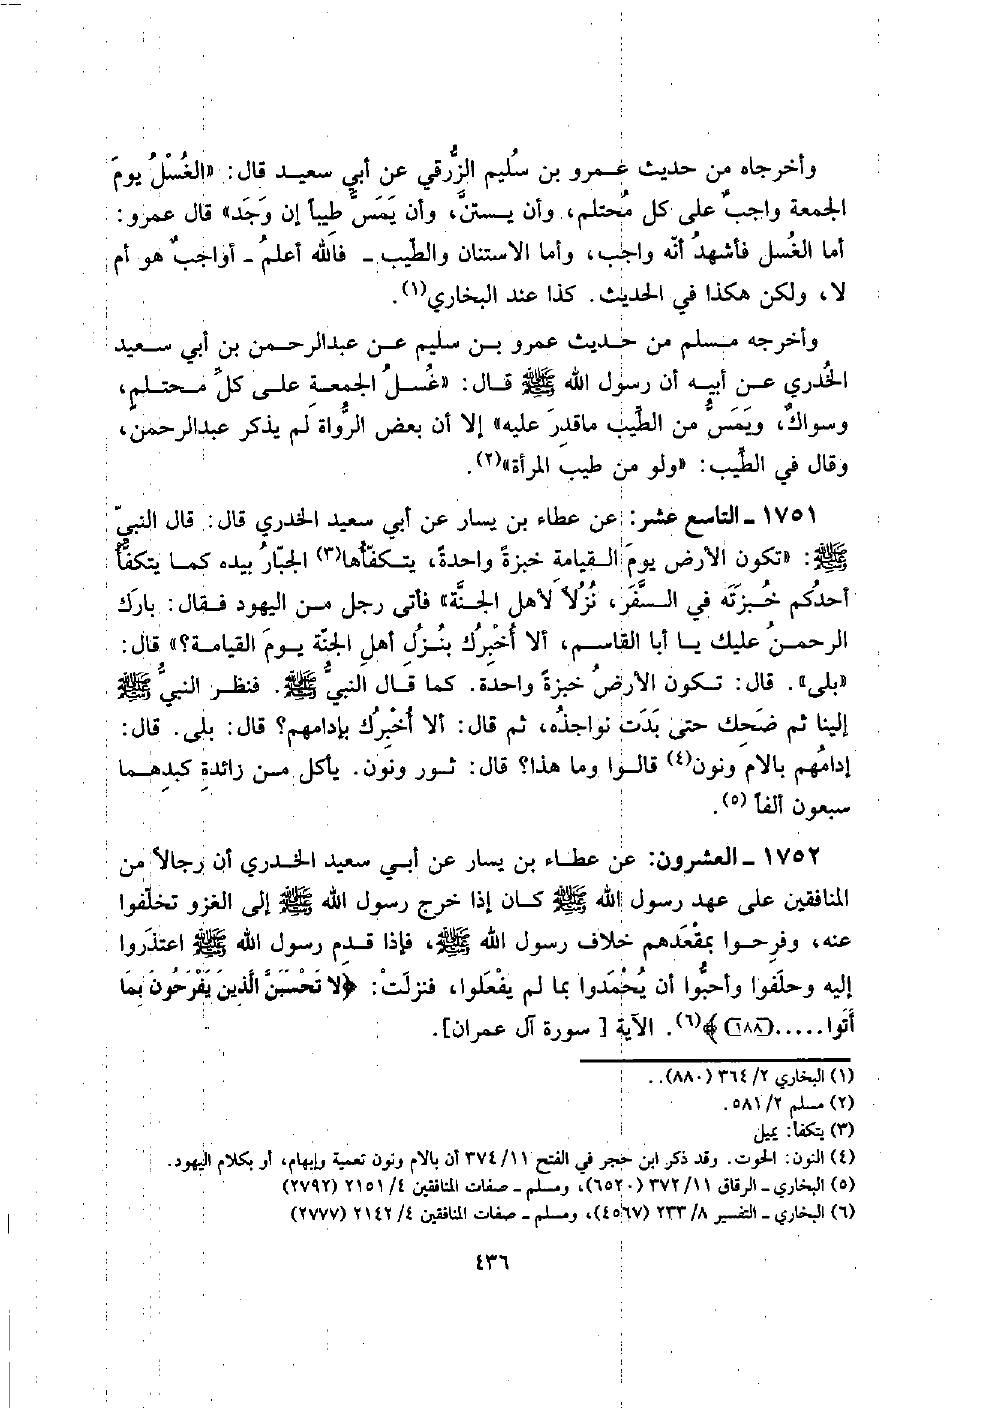 وأخرجاه من حديث عمرو بن سُليم الزُّرقي عن أبي سعيد قال: «الغُسْلُ يومَ
الجمعة واجبٌ على كل مُحتلم، وأن يستنَّ، وأن يَمَسَّ طِيباً إن وَجَد» قال عمرو:
أما الغُسل فأشهدُ أنّه واجب، وأما الاستنان والطّيب ـ فالله أعلمُ ـ أواجبٌ هو أم
لا، ولكن هكذا في الحديث. كذا عند البخاري(١).
وأخرجه مسلم من حديث عمرو بن سليم عن عبدالرحمن بن أبي سعيد
الخُدري عن أبيه أن رسول الله ﷺ قال: «غُسلُ الجمعةِ على كلِّ محتلمٍ،
وسواكٌ، ويَمَسُّ من الطِّيب ماقدرَ عليه» إلا أن بعض الرُّواة لم يذكر عبدالرحمن،
وقال في الطِّيب: «ولو من طيبَ المرأة»(٢).
١٧٥١ ـ التاسع عشر: عن عطاء بن يسار عن أبي سعيد الخدري قال: قال النبيّ
ﷺ: «تكون الأرض يومَ القيامة خبزةً واحدةً، يتكفّأها(٣) الجبّارُ بيده كما يتكفَّأُ
أحدكم خُبزتَه في السَّفَر، نُزُلاً لأهل الجنَّة» فأتى رجل من اليهود فقال: بارك
الرحمنُ عليك يا أبا القاسم، ألا أُخْبِرُك بنُزلِ أهلِ الجنّة يومَ القيامة؟» قال:
«بلى». قال: تكون الأرضُ خبزةً واحدة. كما قال النبيُّ ﷺ. فنظر النبيُّ ﷺ
إلينا ثم ضَحِك حتى بَدَت نواجذُه، ثم قال: ألا أُخبِرُك بإدامهم؟ قال: بلى. قال:
إدامُهم بالام ونون(٤) قالوا وما هذا؟ قال: ثور ونون. يأكل من زائدةِ كبدِهما
سبعون ألفاً (٥).
١٧٥٢ ـ العشرون: عن عطاء بن يسار عن أبي سعيد الخدري أن رجالاً من
المنافقين على عهد رسول الله ﷺ كان إذا خرج رسول الله ﷺ إلى الغزو تخلّفوا
عنه، وفرِحوا بمقْعَدهم خلاف رسول الله ﷺ، فإذا قدم رسول الله ﷺ اعتذَروا
إليه وحلَفوا وأحبُّوا أن يُحْمَدوا بما لم يفْعَلوا، فنزلَتْ: ﴿لا تَحْسَبَنَّ الَّذِينَ يَفْرَحُونَ بِمَا
أَتَوا.....(١٨٨)﴾(٦). الآية [ سورة آل عمران].
(١) البخاري ٢/ ٣٦٤ (٨٨٠)..
(٢) مسلم ٢/ ٥٨١.
(٣) يتكفأ: يميل
(٤) النون: الحوت. وقد ذكر ابن حجر في الفتح ١١/ ٣٧٤ أن بالام ونون تعمية وإبهام، أو بكلام اليهود.
(٥) البخاري ـ الرقاق ١١/ ٣٧٢ (٦٥٢٠)، ومسلم ـ صفات المنافقين ٤/ ٢١٥١ (٢٧٩٢)
(٦) البخاري ـ التفسير ٨/ ٢٣٣ (٤٥٦٧)، ومسلم ـ صفات المنافقين ٤/ ٢١٤٢ (٢٧٧٧)
٤٣٦